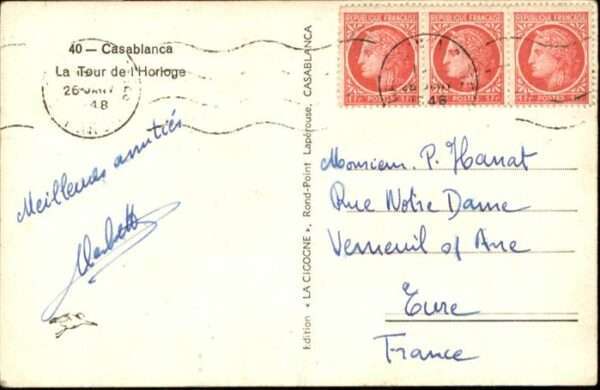 40 — Casablanca
La Tour de l'Horloge
26-JANV
48
Meilleures amitiés
Edition « LA CICOGNE », Rond-Point Lapérouse, CASABLANCA
REPUBLIQUE FRANÇAISE
REPUBLIQUE FRANÇAISE
REPUBLIQUE FRANÇAISE
1F. POSTES 1F.
POSTES 1F.
1F. POSTES 1F.
48
Monsieur P. Hanat
Rue Notre Dame
Verneuil s/ Avre
Eure
France